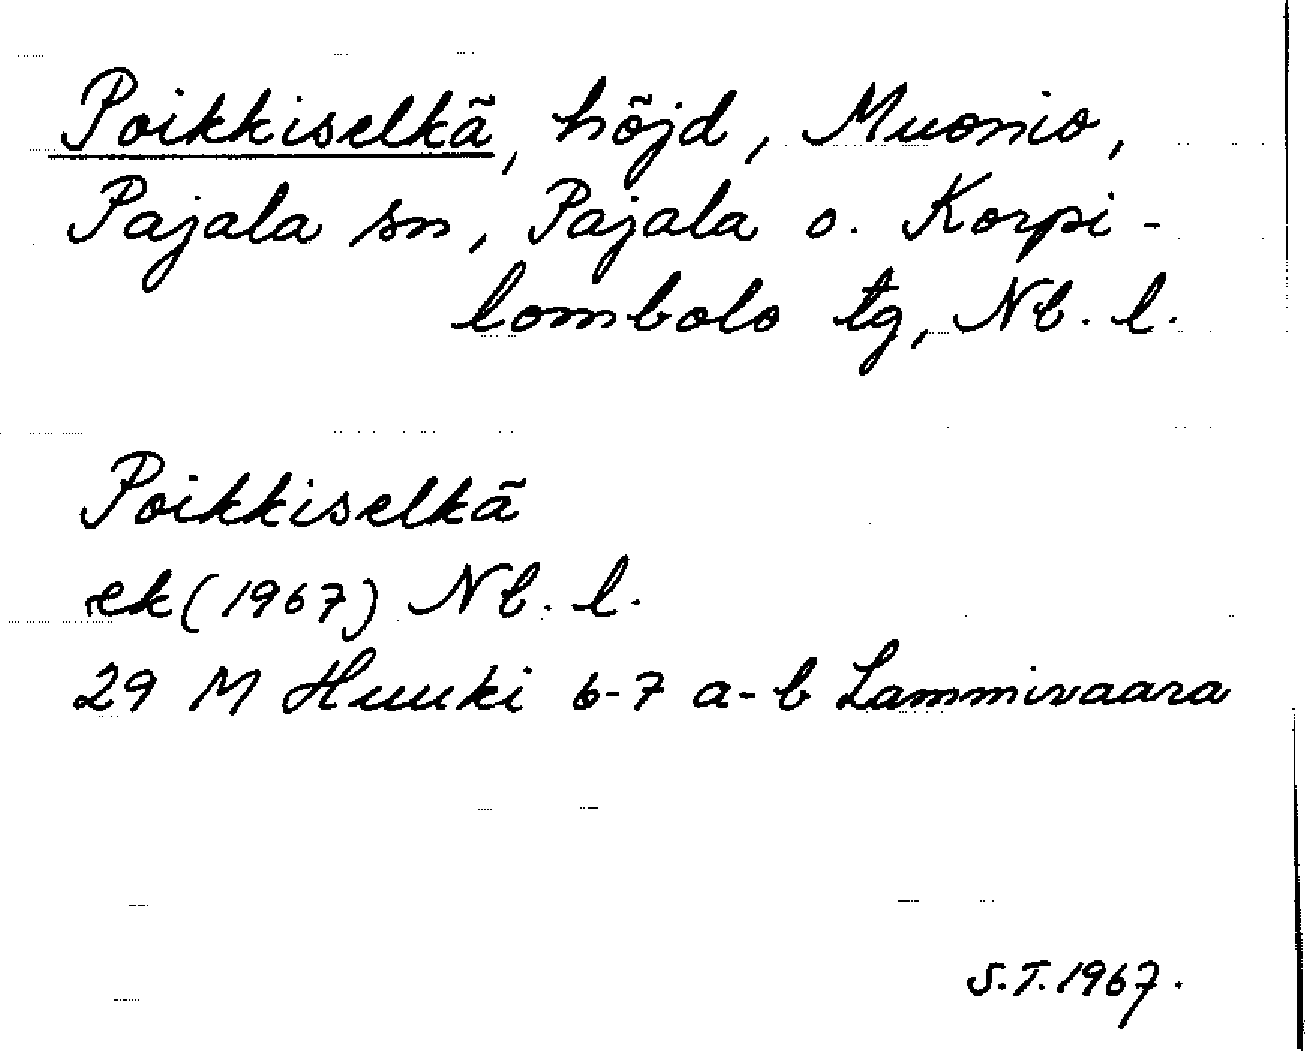 Poikkiselkä, höjd, Muonio,
Pajala sn, Pajala o. Korpi-
lombolo tg, Nb. l.
Poikkiselkä
ek (1967) Nb. l.
29 M Huuki 6-7 a-b Lammivaara
S.T. 1967.